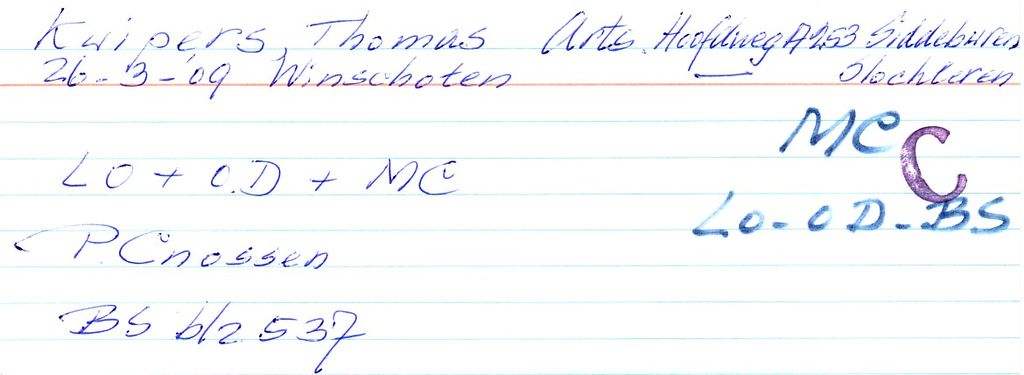 Kuipers, Thomas Arts. Hoofdweg A253 Siddeburen
26-3-09 Winschoten Slochteren
MC C
LO + O.D + MC
LO-OD-BS
P. Cnossen
BS blz 537